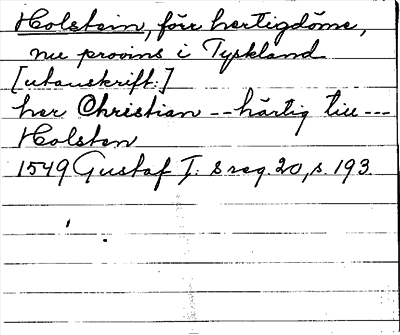 Holstein, förr hertigdöme,
nu provins i Tyskland
[utanskrift:]
her Christian -- härtig till ---
Holsten
1549 Gustaf I:s reg. 20, s. 193.